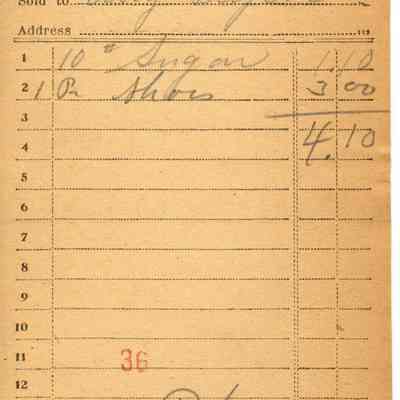 Sold to
Address
1 10 # Sugar 1.10
2 1 Pr Shoes 3 00
3
4 4.10
5
6
7
8
9
10
11 36
12